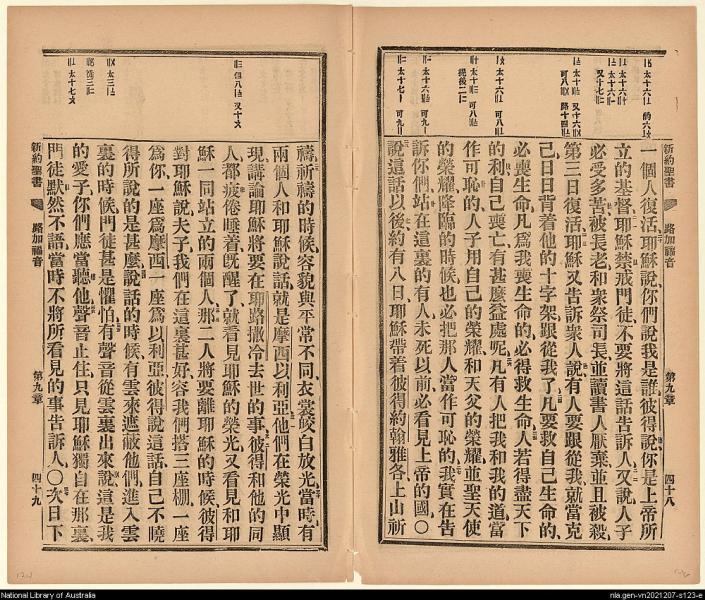 新約聖書
路加福音
第九章
四十八
一個人復活耶穌說你們說我是誰彼得說你是上帝所
立的基督耶穌禁戒門徒不要將這話告訴人又說人子
必受多苦被長老和衆祭司長並讀書人厭棄並且被殺
第三日復活耶穌又告訴衆人說有人要跟從我就當克
己日日背着他的十字架跟從我了凡要救自己生命的
必喪生命凡爲我喪生命的必得救生命人若得盡天下
的利自己喪亡有甚麽益處呢凡有人把我和我的道當
作可恥的人子用自己的榮耀和天父的榮耀並聖天使
的榮耀降臨的時候也必把那人當作可恥的我實在告
訴你們站在這裏的有人未死以前必看見上帝的國〇
說這話以後約有八日耶穌帶着彼得約翰雅各上山祈
禱祈禱的時候容貌與平常不同衣裳皎白放光當時有
兩個人和耶穌說話就是摩西以利亞他們在榮光中顯
現講論耶穌將要在耶路撒冷去世的事彼得和他的同
人都疲倦睡着旣醒了就看見耶穌的榮光又看見和耶
穌一同站立的兩個人那二人將要離耶穌的時候彼得
對耶穌說夫子我們在這裏甚好容我們搭三座棚一座
爲你一座爲摩西一座爲以利亞彼得說這話自己不曉
得所說的是甚麽說話的時候有雲來遮蔽他們進入雲
裏的時候門徒甚是懼怕有聲音從雲裏出來說這是我
的愛子你們應當聽他聲音止住只見耶穌獨自在那裏
門徒默然不語當時不將所看見的事告訴人〇次日下
新約聖書
路加福音
第九章
四十九
National Library of Australia
nla.gen-vn2021207-s123-e